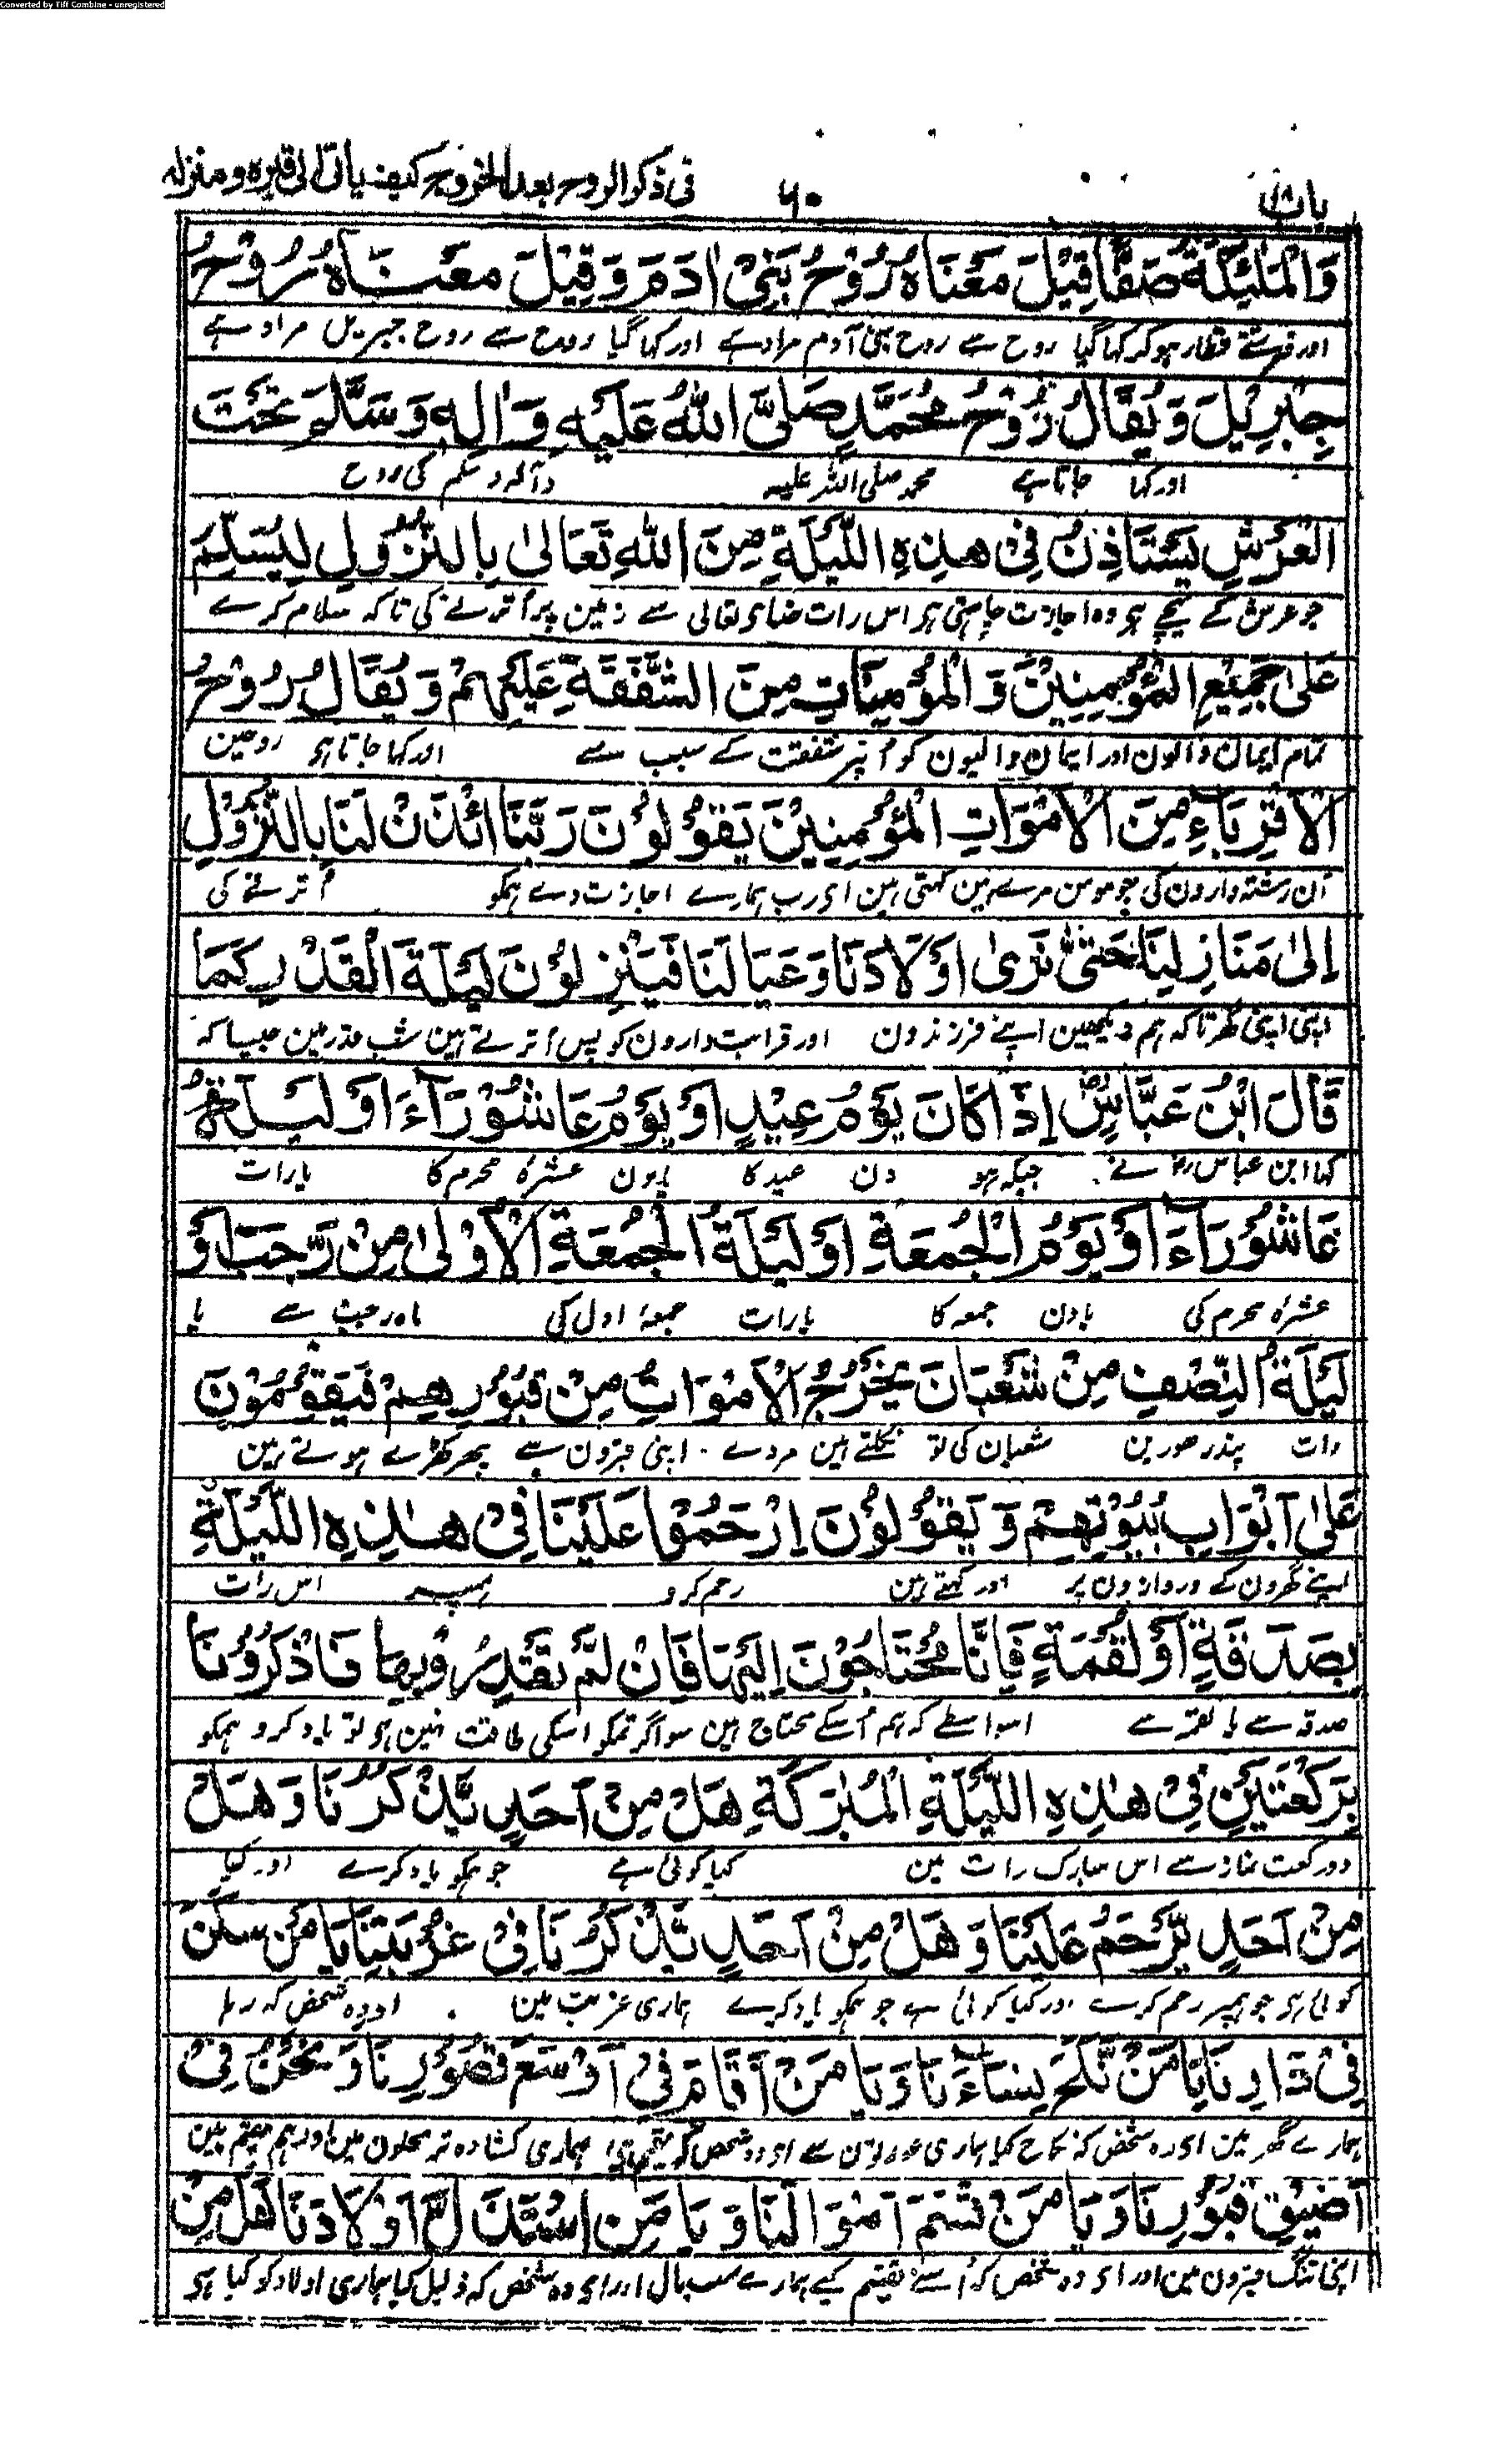 Converted by Tiff Combine - unregistered
باب ۶۰ فی ذکر الروح بعد الخروج کیف یاتی الی قبره و منزله
وَالْمَلٰٓئِکَةُ صَفًّا قِیْلَ مَعْنَاهُ رُوْحُ بَنِیْ اٰدَمَ وَقِیْلَ مَعْنَاهُ رُوْحُ
اور فرشتے قطار ہوکر کہا گیا روح سے روح بنی آدم مراد ہے اور کہا گیا روح سے روح جبریل مراد ہے
جِبْرِیْلَ وَیُقَالُ رُوْحُ مُحَمَّدٍ صَلَّی اللّٰهُ عَلَیْهِ وَاٰلِهٖ وَسَلَّمَ تَحْتَ
اور کہا جاتا ہے محمد صلی اللہ علیہ وآلہ وسلم کی روح
الْعَرْشِ یَسْتَاْذِنُ فِیْ هٰذِهِ اللَّیْلَةِ مِنَ اللّٰهِ تَعَالٰی بِالنُّزُوْلِ لِیُسَلِّمَ
جو عرش کے نیچے ہو وہ اجازت چاہتی ہو اس رات خدای تعالی سے زمین پر اُترنے کی تاکہ سلام کرے
عَلٰی جَمِیْعِ الْمُؤْمِنِیْنَ وَالْمُؤْمِنَاتِ مِنَ الشَّفَقَةِ عَلَیْهِمْ وَیُقَالُ رُوْحُ
تمام ایمان والون اور ایمان والیون کو اُنپر شفقت کے سبب سے اور کہا جاتا ہو روحین
الْاَقْرِبَاءِ مِنَ الْاَمْوَاتِ الْمُؤْمِنِیْنَ یَقُوْلُوْنَ رَبَّنَا ائْذَنْ لَنَا بِالنُّزُوْلِ
اُن رشتہ دارون کی جو مومن مرے ہین کہتی ہین ای رب ہمارے اجازت دے ہمکو اُترنے کی
اِلٰی مَنَازِلِنَا حَتّٰی نَرٰی اَوْلَادَنَا وَعَیَالَنَا فَیَنْزِلُوْنَ لَیْلَةَ الْقَدْرِ کَمَا
اپنی اپنی گھر تاکہ ہم دیکھین اپنے فرزندون اور قرابت دارون کو پس اُترتے ہین شب قدر مین جیسا کہ
قَالَ ابْنُ عَبَّاسٍ رض اِذَا کَانَ یَوْمُ عِیْدٍ اَوْ یَوْمُ عَاشُوْرَآءَ اَوْ لَیْلَةُ
کہا ابن عباس رض نے جبکہ ہو دن عید کا یا دن عشرۂ محرم کا یا رات
عَاشُوْرَآءَ اَوْ یَوْمُ الْجُمُعَةِ اَوْ لَیْلَةُ الْجُمُعَةِ الْاُوْلٰی مِنْ رَّجَبَ اَوْ
عشرۂ محرم کی یا دن جمعہ کا یا رات جمعۂ اول کی ماہ رجب سے یا
لَیْلَةُ النِّصْفِ مِنْ شَعْبَانَ یَخْرُجُ الْاَمْوَاتُ مِنْ قُبُوْرِهِمْ فَیَقُوْمُوْنَ
رات پندرھوین شعبان کی تو نکلتے ہین مردے اپنی قبرون سے پھر کھڑے ہوتے ہین
عَلٰی اَبْوَابِ بُیُوْتِهِمْ وَیَقُوْلُوْنَ اِرْحَمُوْا عَلَیْنَا فِیْ هٰذِهِ اللَّیْلَةِ
اپنے گھرون کے دروازون پر اور کہتے ہین رحم کرو ہمپر اس رات
بِصَدَقَةٍ اَوْ لُقْمَةٍ فَاِنَّا مُحْتَاجُوْنَ اِلَیْهَا فَاِنْ لَمْ تَقْدِرُوْا بِهَا فَاذْکُرُوْنَا
صدقہ سے یا لقمہ سے اسواسطے کہ ہم اُسکے محتاج ہین سو اگر تمکو اسکی طاقت نہین ہو تو یاد کرو ہمکو
بِرَکْعَتَیْنِ فِیْ هٰذِهِ اللَّیْلَةِ الْمُبٰرَکَةِ هَلْ مِنْ اَحَدٍ یَّذْکُرُنَا وَهَلْ
دو رکعت نماز سے اس مبارک رات مین کیا کوئی ہے جو ہمکو یاد کرے اور کیا
مِنْ اَحَدٍ یَّرْحَمُ عَلَیْنَا وَهَلْ مِنْ اَحَدٍ یَّذْکُرُنَا فِیْ غُرْبَتِنَا یَا مَنْ سَکَنَ
کوئی ہو جو ہمپر رحم کرے اور کیا کوئی ہے جو ہمکو یاد کرے ہماری غربت مین ای وہ شخص کہ رہا
فِیْ دَارِنَا یَا مَنْ نَّکَحَ نِسَآءَنَا وَیَا مَنْ اَقَامَ فِیْ اَوْسَعَ قُصُوْرِنَا وَنَحْنُ فِیْ
ہمارے گھر مین ای وہ شخص کہ نکاح کیا ہماری عورتون سے ای وہ شخص کہ مقیم ہو ہماری کشادہ تر محلون مین اور ہم مقیم ہین
اَضْیَقِ قُبُوْرِنَا وَیَا مَنْ قَسَمَ اَمْوَالَنَا وَیَا مَنِ اسْتَذَلَّ اَوْلَادَنَا هَلْ مِنْ
اپنی تنگ قبرون مین اور ای وہ شخص کہ اُسنے تقسیم کیے ہمارے سب مال اور ای وہ شخص کہ ذلیل کیا ہماری اولاد کو کیا ہو